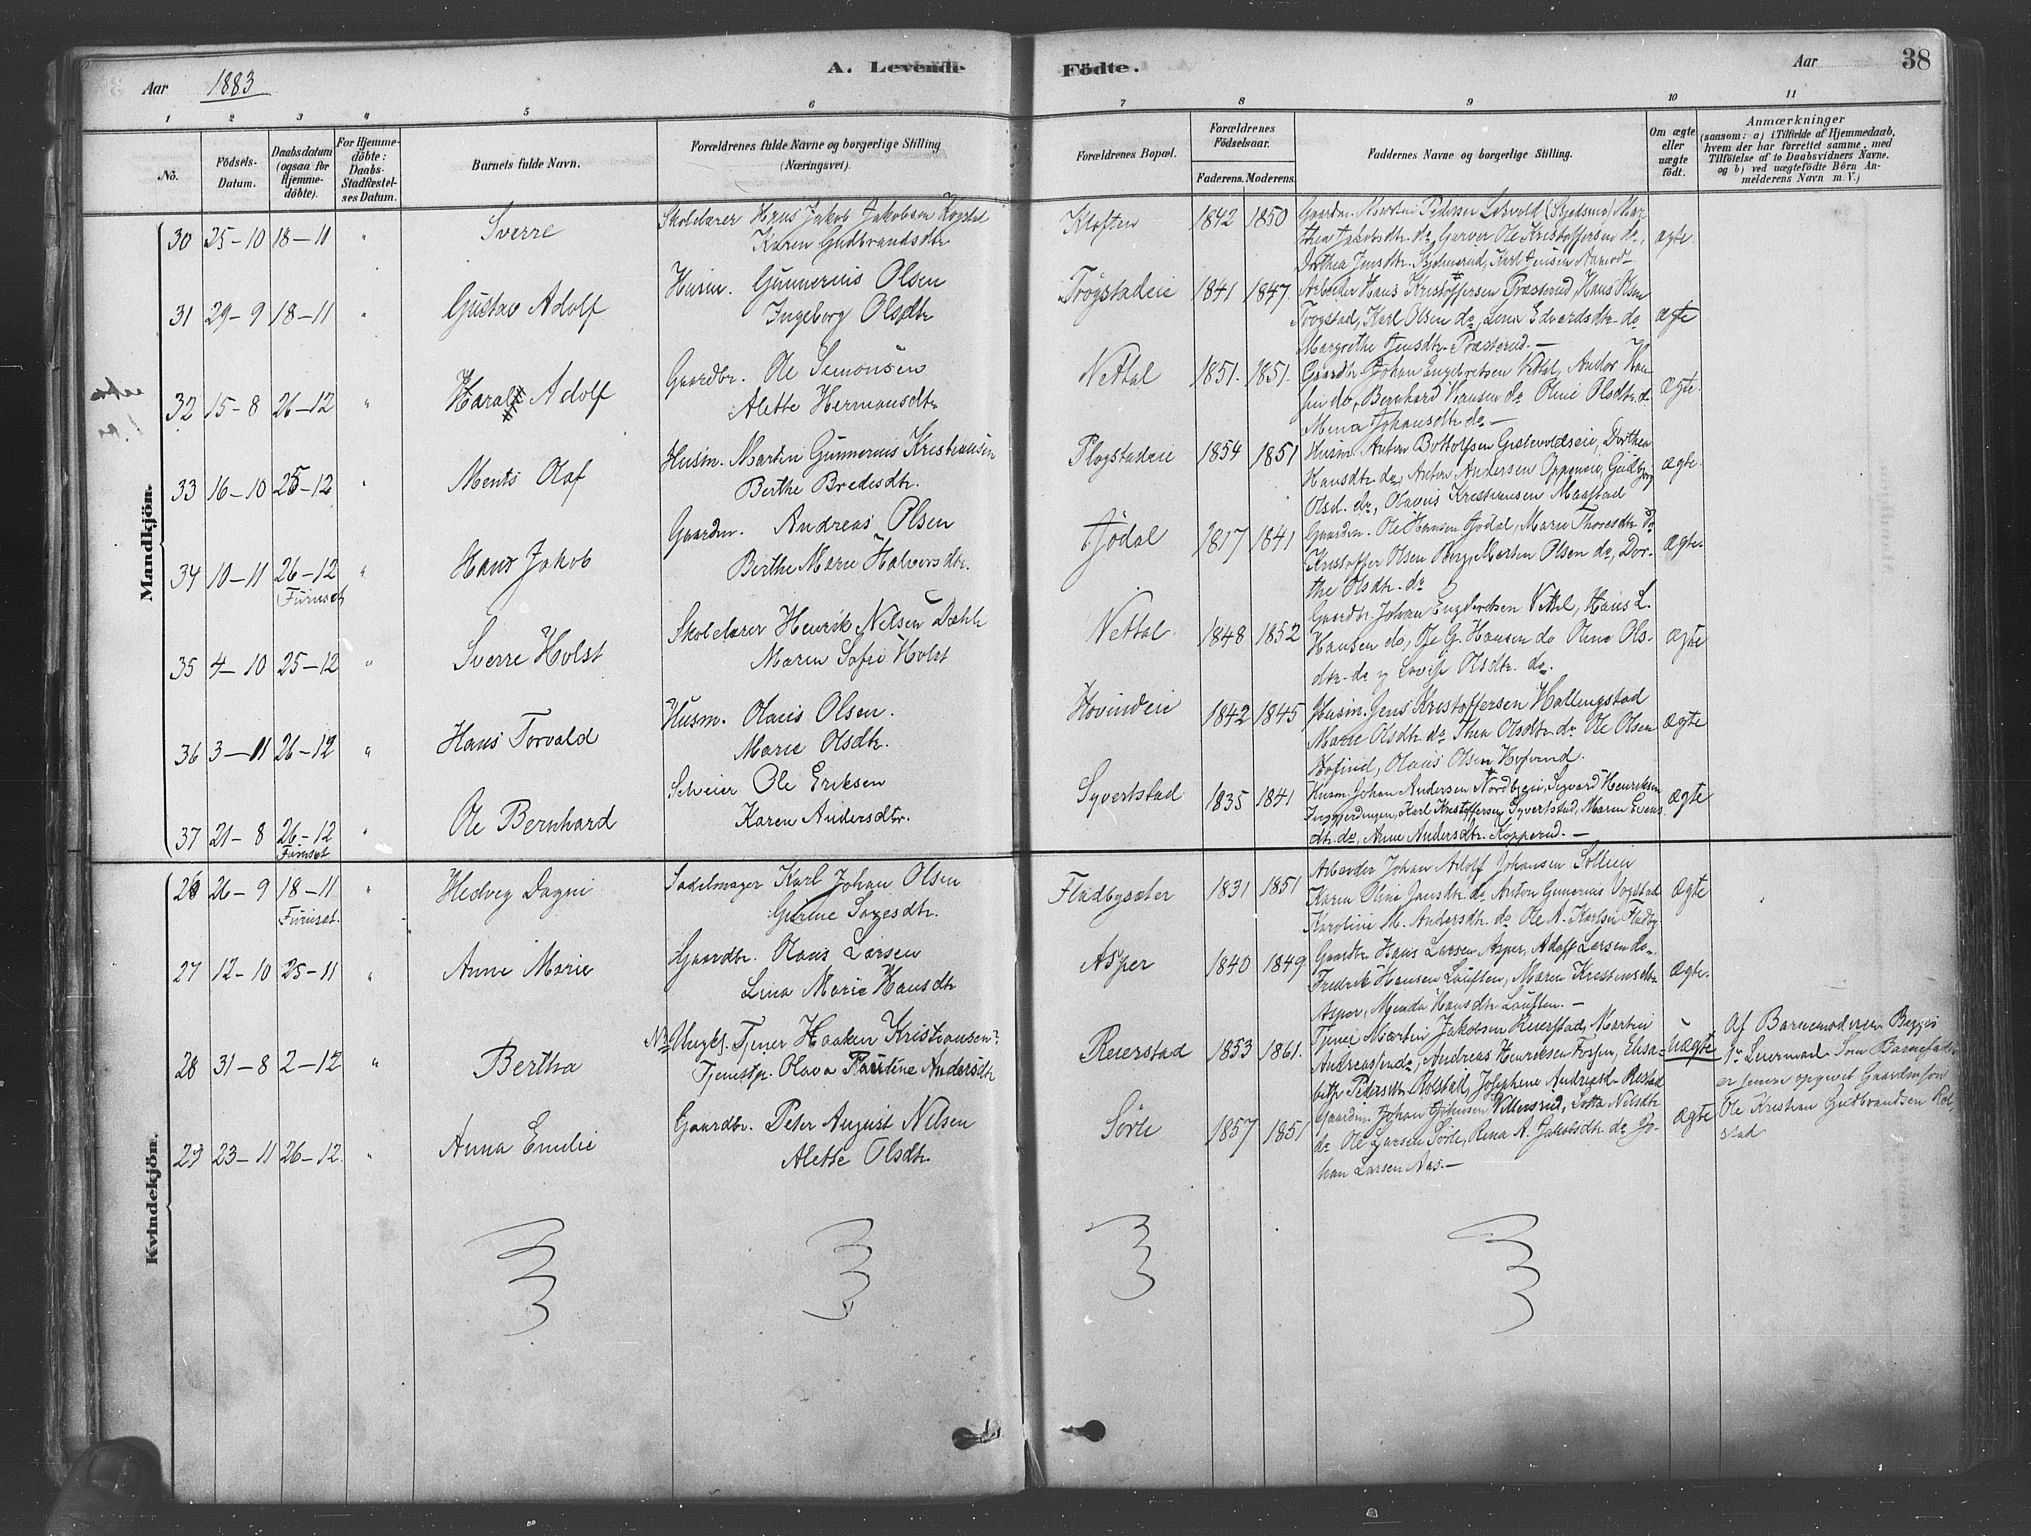 Aar 1883
A. Levende Födte.
Aar
38
1 2 3 4 5 6 7 8 9 10 11
No.
Födsels-Datum.
Daabsdatum (ogsaa for Hjemmedöbte).
For Hjemmedöbte: Daabs-Stadfestelses Datum.
Barnets fulde Navn.
Forældrenes fulde Navne og borgerlige Stilling (Næringsvei).
Forældrenes Bopæl.
Forældrenes Födselsaar.
Faderens. Moderens.
Faddernes Navne og borgerlige Stilling.
Om ægte eller uægte födt.
Anmærkninger
(saasom: a) i Tilfælde af Hjemmedaab,
hvem der har forrettet samme, med
Tilföielse af to Daabsvidners Navne.
og b) ved uægtefödte Börn An-
melderens Navn m. V.)
Mandkjön.
30 25-10 18-11 " Sverre
Skolelærer Hans Jakob Jakobsen Kogstad
Karen Gudbrandsdtr
Kloften 1842 1850
Gaardm. Pedersen (Skedsmo) Mar-
thea Jakobsdtr. do, Garver Ole Kristoffersen do,
Dorthea Jensdtr. Karl Jensen
ægte.
31 29-9 18-11 " Gustav Adolf
Husm. Gunnerius Olsen
Ingeborg Olsdtr
Trögstadeie 1841 1847.
Arbeider Hans Kristoffersen Præsterud, Hans Olsen
Trogstad, Karl Olsen do, Lena Edvardsdtr do
Margrethe Jensdtr. Præsterud.—
ægte
32 15-8 26-12 " Harald Adolf
Gaardbr. Ole Simonsen
Alette Hermansdtr
Nettal 1851. 1851.
Gaardbr. Johan Engebretsen Nettal, Andor Han-
sen do, Bernhard Hansen do Oline Olsdtr. do
Mina Johansdtr do—
ægte.
33 16-10 25-12 " Ments Olaf
Husm. Martin Gunnerius Kristiansen
Berthe Bredesdtr.
Plogstadeie 1854 1851
Husm. Anton Bottolfsen Dorthea
Hansdtr. do, Anton Andersen Oppeneie, Gudbjør
Olsd. do, Olavus Kristiansen
ægte.
34 10-11 26-12 " Hans Jakob
Furuset
Gaardm. Andreas Olsen
Berthe Marie Halvorsdtr.
Jødal 1817 1841
Gaardm. Ole Hansen Jødal, Marie Thoresdtr do
Kristoffer Olsen Berg, Martin Olsen do, Dor-
the Olsdtr. do
ægte.
35 4-10 25-12 " Sverre Holst
Skolelærer Henrik Nilsen Dæhle
Maren Sofie Holst
Nettal. 1848 1852
Gaardbr. Johan Engebretsen Nettal, Hans L.
Hansen do, Ole G. Hansen do Oline Ols-
dtr. do og Lovise Olsdtr. do.
ægte
36 3-11 26-12 " Hans Torvald
Husm. Olaus Olsen.
Marie Olsdtr.
Hovindeie 1842 1845
Husm. Jens Kristoffersen Hallingstad
Marie Olsdtr. do Thea Olsdtr. do Ole Olsen
Hofind, Olaus Olsen Hofvind.
ægte
37 21-8 26-12 " Ole Bernhard
Furuset
Selveier Ole Eriksen
Karen Andersdtr.
Syvertstad 1835 1841
Husm. Johan Andersen Nordbyeie, Sigvard Henriksen
Karl Kristoffersen Syvertstad, Maren Evens-
dtr. do, Anne Andersdtr. Kopperud.—
ægte
Kvindekjön.
26 26-9 18-11 " Hedvig Dagni
Furuset.
Sadelmager Karl Johan Olsen
Gurine
Fladbysæter 1831 1851
Arbeider Johan Adolf Johansen
Karen Oline Jansdtr. do, Anton Gunerius
Karoline M. Andersdtr. do Ole A. Karlsen Fladby
ægte
27 12-10 25-11 " Anne Marie
Gaardbr. Olaus Larsen
Lina Marie Hansdtr
Asper 1840 1849
Gaardbr. Hans Larsen Asper, Adolf Larsen do,
Fredrik Hansen Lauften, Maren Kristensdtr
Asper, Menda Hansdtr Lauften.—
ægte.
28 31-8 2-12 " Bertha
Ungk. Tjener Haaken Kristiansen
Tjenestp. Olava Pauline Andersdtr
Reierstad 1853 1861.
Tjener Martin Jakobsen Reierstad, Martin
Andreassen do, Andreas Henriksen Elisa-
beth Pedersdtr. Kolstad, Josephine
uægte
Af Barnemoderen
1st Leiermaal. Som Barnefader
er senere opgivet Gaardmsön
Ole Kristian Gudbrandsen Kol-
stad
29 23-11 26-12. " Anna Emilie
Gaardbr. Peter August Nilsen
Alette Olsdtr.
Sörle 1857 1851
Gaardm. Johan Johnsen Lotta Nilsdtr
do Ole Larsen Sörle, Rina A. Jakobsdtr. do Jo-
han Larsen Aas.—
ægte